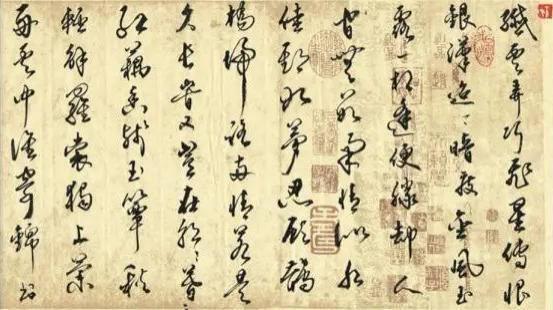 纖雲弄巧飛星傳恨
銀漢迢〻暗度金風玉
露一相逢便勝却人
間無數柔情似水
佳期如夢忍顧鵲
橋歸路兩情若是
久長時又豈在朝〻暮〻
紅藕香殘玉簟秋
輕解羅裳獨上蘭
舟雲中誰寄錦書